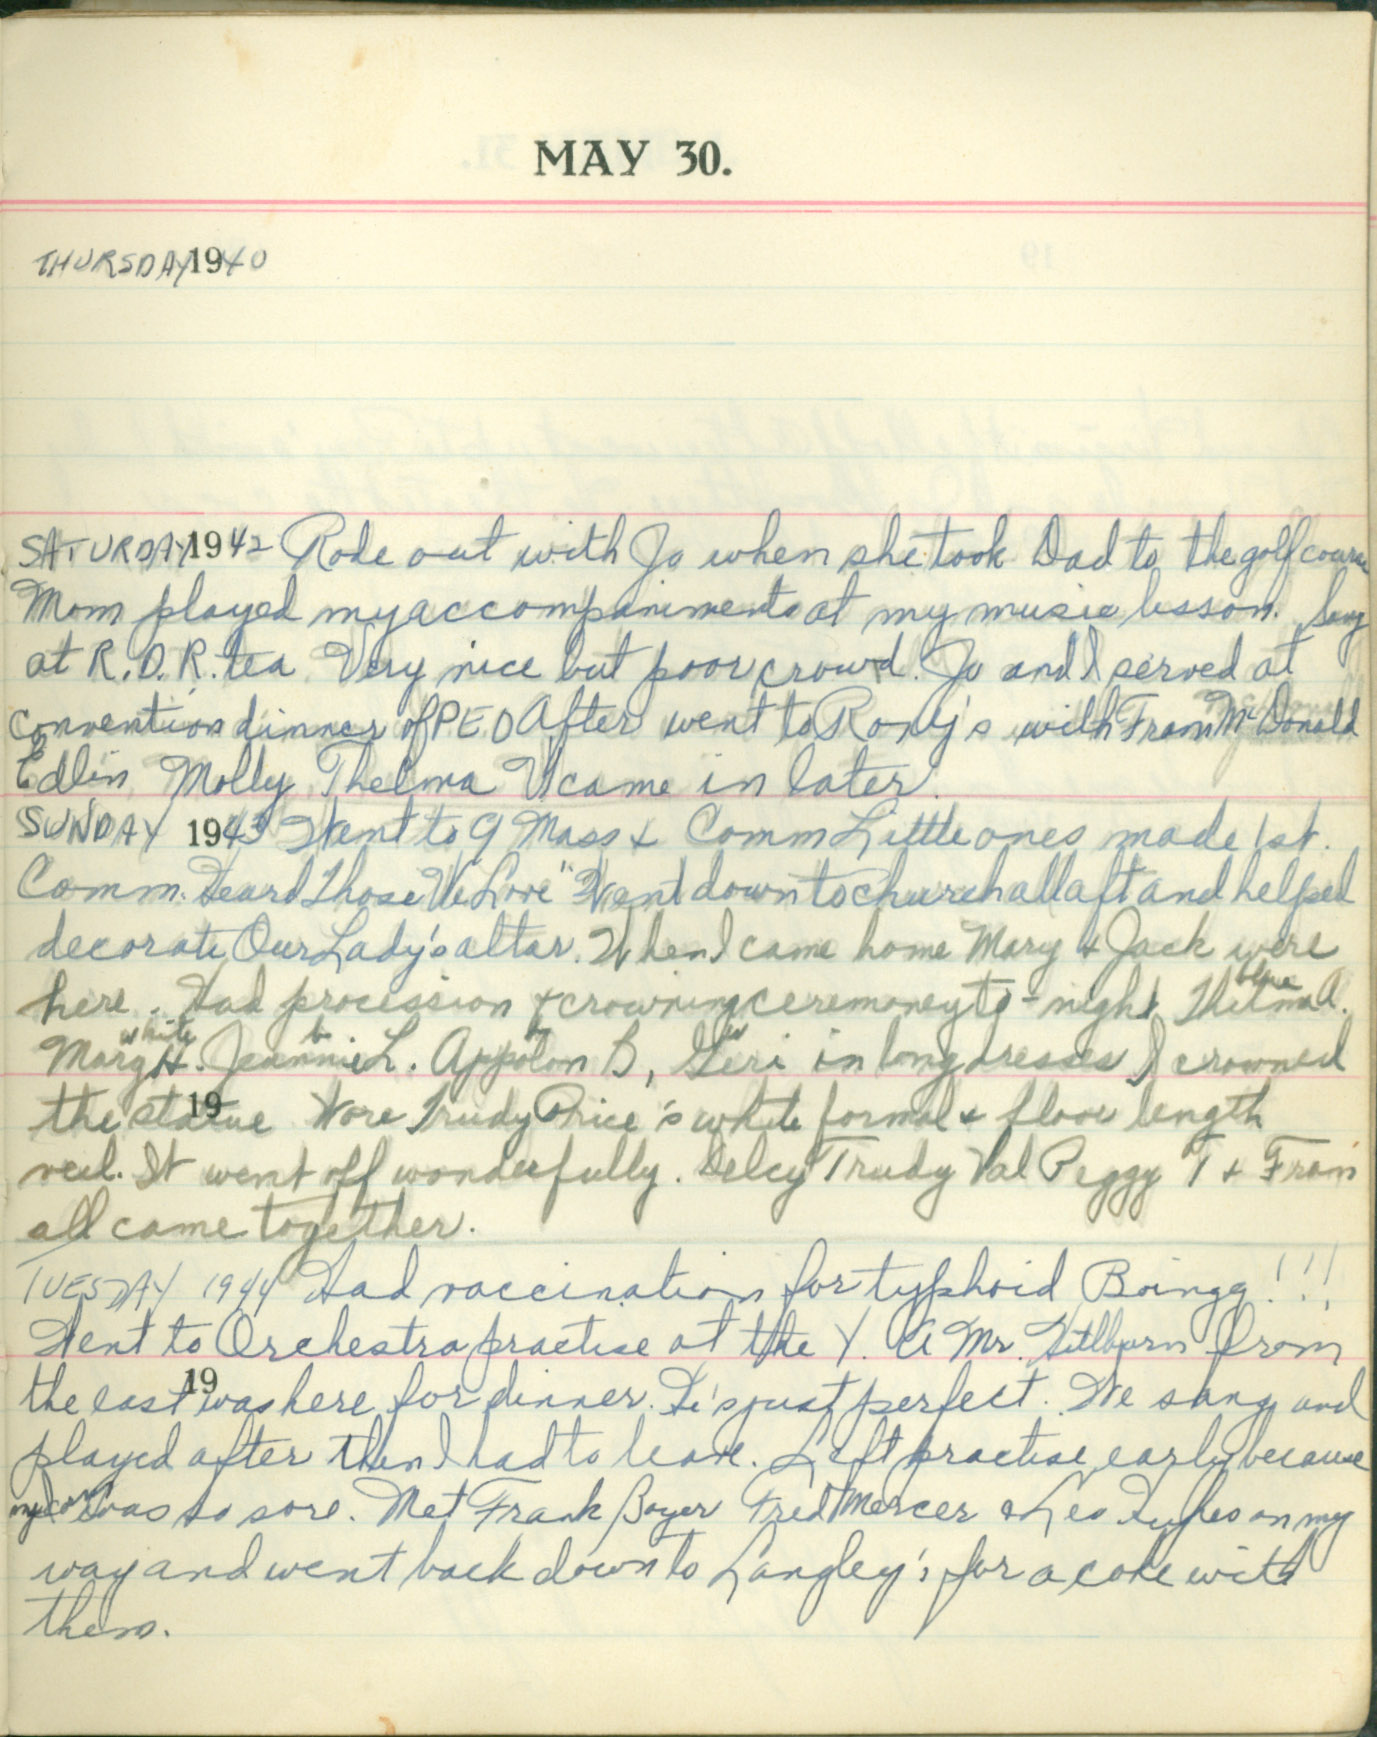 MAY 30.
THURSDAY 1940
SATURDAY 1942 Rode out with Jo when she took Dad to the golf course
Mom played my accompaniments at my music lesson. Sang
at R.O.R. tea Very nice but poor crowd. Jo and I served at
convention dinner of PEO After went to Rony's with Fran McDonald
Edlin Molly Thelma V came in later.
SUNDAY 1943 Went to 9 Mass & Comm Little ones made 1st.
Comm. Heard "Those We Love" Went down to church all aft and helped
decorate Our Lady's altar. When I came home Mary & Jack were
here. Had procession & crowning ceremoney to-night Thelma A.
blue
Mary H. Jeannie L. Appolon B, Geri in long dresses I crowned
white b b w
the statue 19 Wore Trudy Price's white formal & floor length
veil. It went off wonderfully. Delcy Trudy Val Peggy T & Fran
all came together.
TUESDAY 1944 Had vaccination for typhoid Boingg!!!
Went to Orchestra practise at the Y. A Mr. from
the east 19 was here for dinner. He's just perfect. We sang and
played after then I had to leave. Left practise early because
my arm was so sore. Met Frank Boyer Fred Mercer & Leo on my
way and went back down to Langley's for a coke with
them.